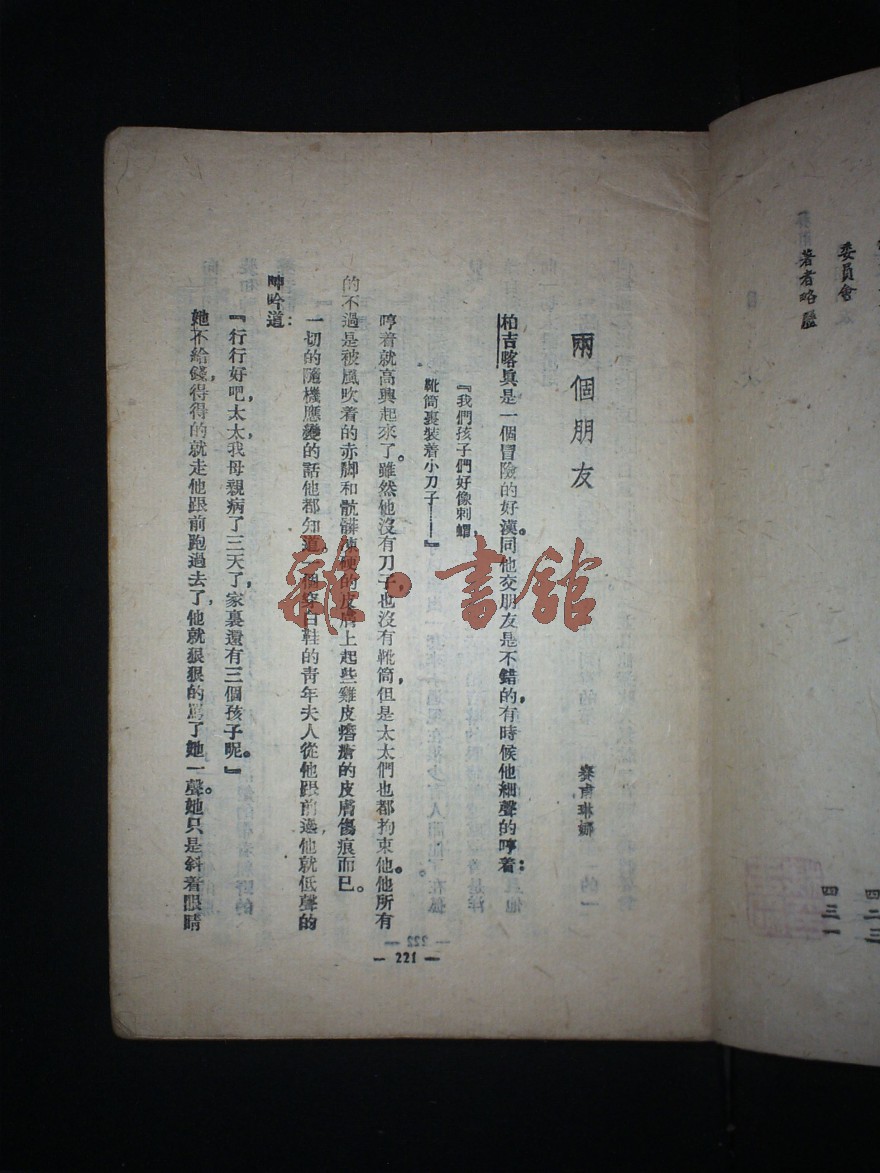 委員會
著者略歷
四二三
四三一
兩個朋友
賽甫琳娜
柏吉喀眞是一個冒險的好漢。同他交朋友是不錯的，有時候他細聲的哼着：
『我們孩子們好像刺蝟，
靴筒裏裝着小刀子——』
哼着就高興起來了。雖然他沒有刀子，也沒有靴筒，但是太太們也都拘束他。他所有
的不過是被風吹着的赤脚和骯髒凍硬的皮膚上起些雞皮瘡的皮膚傷痕而已。
一切的隨機應變的話他都知道。個穿白鞋的靑年夫人從他跟前過，他就低聲的
呻吟道：
『行行好吧，太太，我母親病了三天了，家裏還有三個孩子呢。』
她不給錢，得得的就走他跟前跑過去了，他就狠狠的罵了她一聲。她只是斜着眼睛
— 221 —
雜·書舘